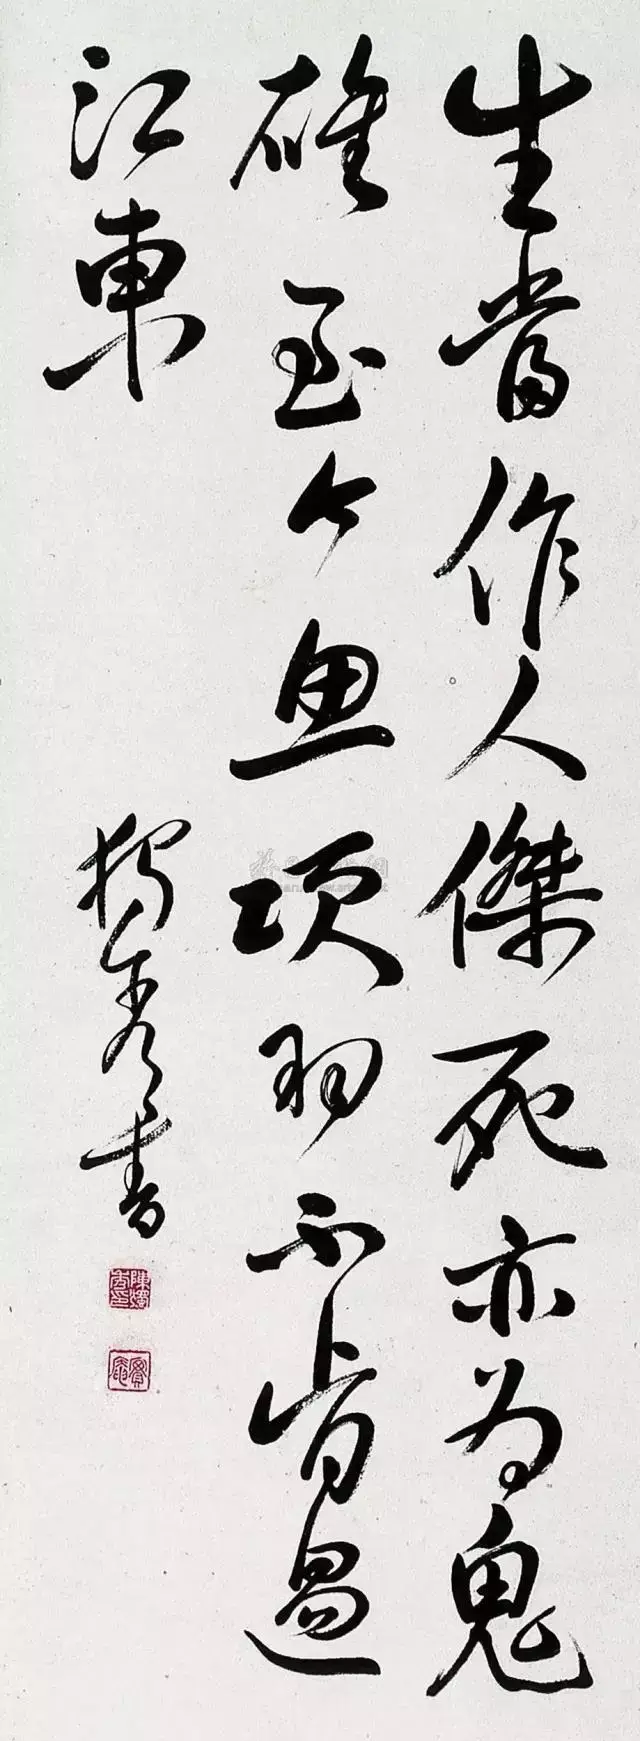 生當作人傑死亦為鬼
雄至今思項羽不肯過
江東
獨秀書
陳獨秀印